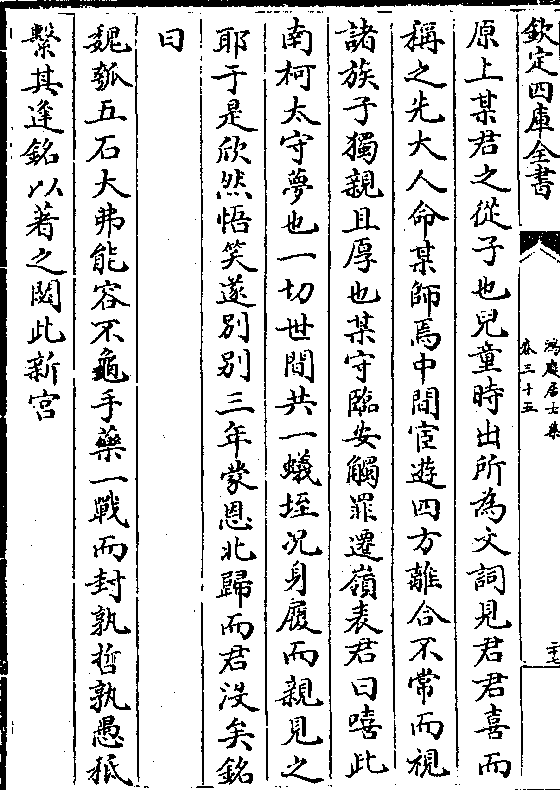 欽定四庫全書
鴻慶居士集
卷三十五
二十七
原上某君之從子也兒童時出所為文詞見君君喜而
稱之先大人命某師焉中間宦遊四方離合不常而視
諸族子獨親且厚也某守臨安觸罪遷嶺表君曰嘻此
南柯太守夢也一切世間共一蟻垤况身履而親見之
耶于是欣然悟笑遂别别三年蒙恩北歸而君沒矣銘
曰
魏瓠五石大弗能容不龜手藥一戰而封孰哲孰愚秪
繫其逢銘以著之閟此新宫